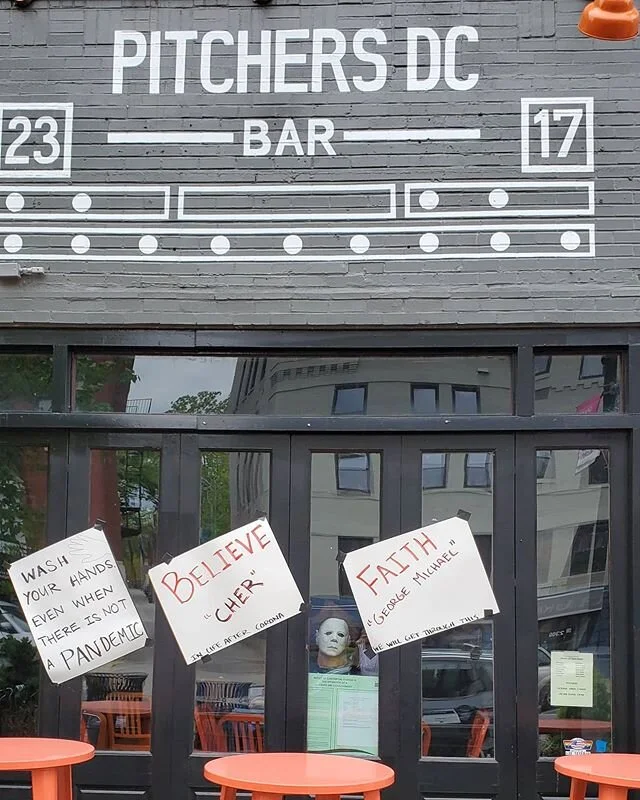 PITCHERS DC
BAR
23
17
WASH
YOUR HANDS
EVEN WHEN
THERE IS NOT
A PANDEMIC
BELIEVE
"CHER"
IN LIFE AFTER CORONA
FAITH
"GEORGE MICHAEL"
WE WILL GET THROUGH THIS